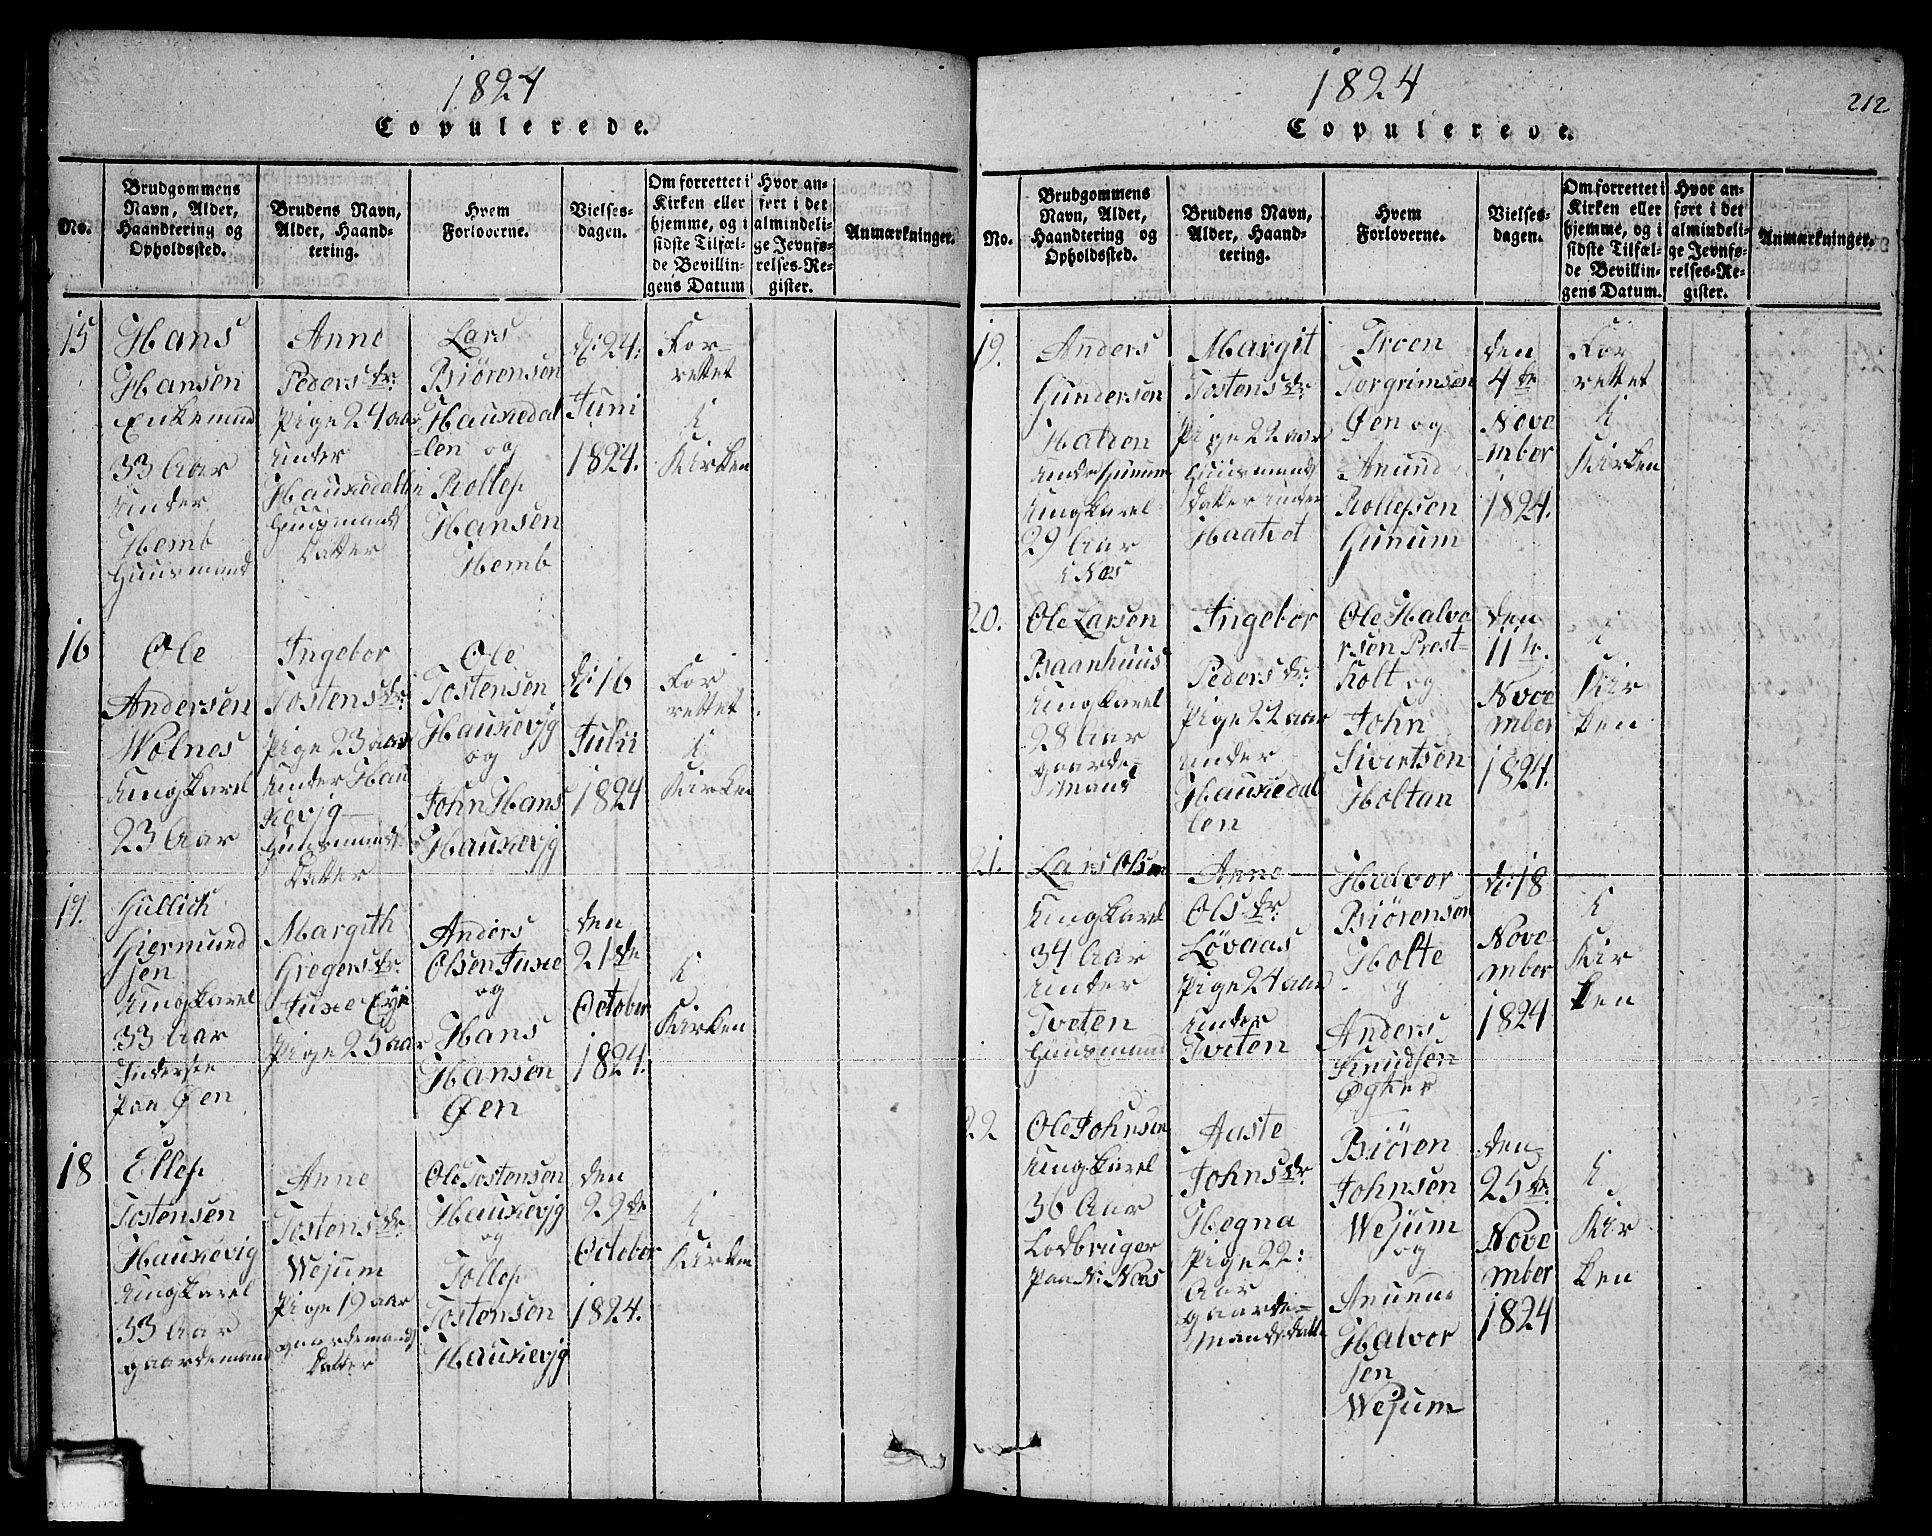 1824
Copulerede.
No.
Brudgommens
Navn, Alder,
Haandtering og
Opholdssted.
Brudens Navn,
Alder, Haand-
tering.
Hvem
Forloverne.
Vielses-
dagen.
Om forrettet i
Kirken eller
hjemme, og i
sidste Tilfæl-
de Bevillin-
gens Datum
Hvor an-
ført i det
almindeli-
ge Jevnfø-
relses-Re-
gister.
Anmærkninger.
15
Hans
Hansen
Enkemand
33 Aar
under
Hemb
Huusmand
Anne
Peders dr.
Pige 24 aar
under
Hauxedallen
Huusmands
Datter
Lars
Biörensen
Hauxedal
-len og
Rollef
Hansen
Hemb
d: 24:
Juni
1824.
For-
rettet
i
Kirken
16
Ole
Andersen
Wolnes
Ungkarel
23 Aar
Ingebor
Tostens dr.
Pige 23 aar
under Hau
xevig
Huusmands
Datter
Ole
Tostensen
Hauxevjg
og
John Hans
Hauxevjg
d: 16
Julii
1824
For
rettet
i
Kirken
17.
Hüllich
Giermund
sen
Ungkarel
33 Aar
Inderste
paa Øen
Margith
Gregers dr.
Juxe Eye
Pige 25 aar
Anders
Olsen Juxe
og
Hans
Hansen
Øen
den
21 de
October
1824.
i
Kirken
18
Ellef
Tostensen
Hauxevig
Ungkarel
33 Aar
gaardemand
Anne
Tostens dr.
Wejum
Pige 19 aar
gaardemands
Datter
Ole Tostensen
Hauxevjg
og
Tollef
Tostensen
Hauxevjg
den
29 de
October
1824.
i
Kirken
1824
212
Copulerede.
No.
Brudgommens
Navn, Alder,
Haandtering og
Opholdssted.
Brudens Navn,
Alder, Haand-
tering.
Hvem
Forloverne.
Vielses-
dagen.
Om forrettet i
Kirken eller
hjemme, og i
sidste Tilfæl-
de Bevillin-
gens Datum.
Hvor an-
ført i det
almindeli-
ge Jevnfø-
relses-Re-
gister.
Anmærkninger.
19.
Anders
Gundersen
Halden
Ungkarel
29 Aar
i Næs
Margit
Tostens dr.
Pige 22 aar
Huusmands
Datter under
Haatvet
Troen
Torgrimsen
Øen og
Anund
Rollefsen
Gunum
den
4 de
Nove
-mber
1824.
For
rettet
i
Kirken
20.
Ole Larsen
Baanhuus
Ungkarel
28 Aar
gaarde-
mand
Ingebor
Peders dr.
Pige 22 aar
under
Hauxedal
len
Ole Halvo
rsen Prest-
holt og
John
Sivertsen
Holtan
den
11 te.
Nove
mber
1824.
i
Kir
ken
21.
Lars Olsen
Ungkarel
34 Aar
under
Tveten
Huusmand
Anne
Ols dr.
Løvaas
Pige 24 aar
under
Tveten
Halvor
Biörensen
Holte
og
Anders
Knudsen
Øgter
d: 18
Nove
mber
1824
i
Kir
ken
22
Ole Johnsen
Ungkarel
36 Aar
Lodbruger
paa N: Næs
Aaste
Johns dr.
Hegna
Pige 22:
Aar
gaarde-
mands datter
Biören
Johnsen
Wejum
og
Anund
Halvor
sen
Wejum
den
25 de.
Nove
mber
1824
i
Kir
ken